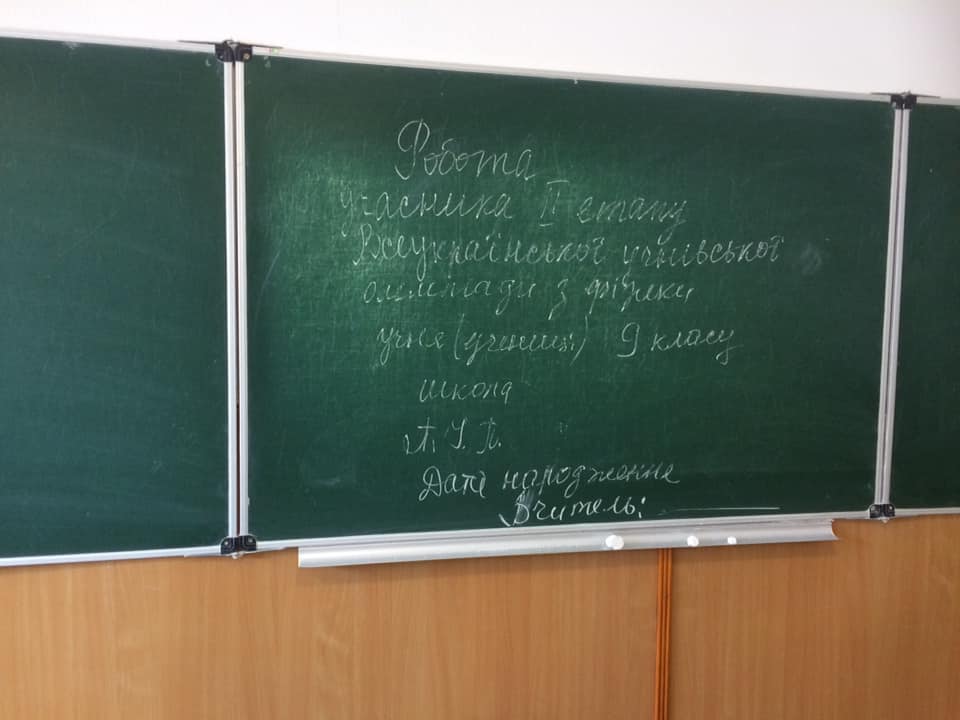 Робота
учасника II етапу
Всеукраїнської учнівської
олімпіади з фізики
учня (учениці) 9 класу
школа
П. І. П.
Дата народження
Вчитель: